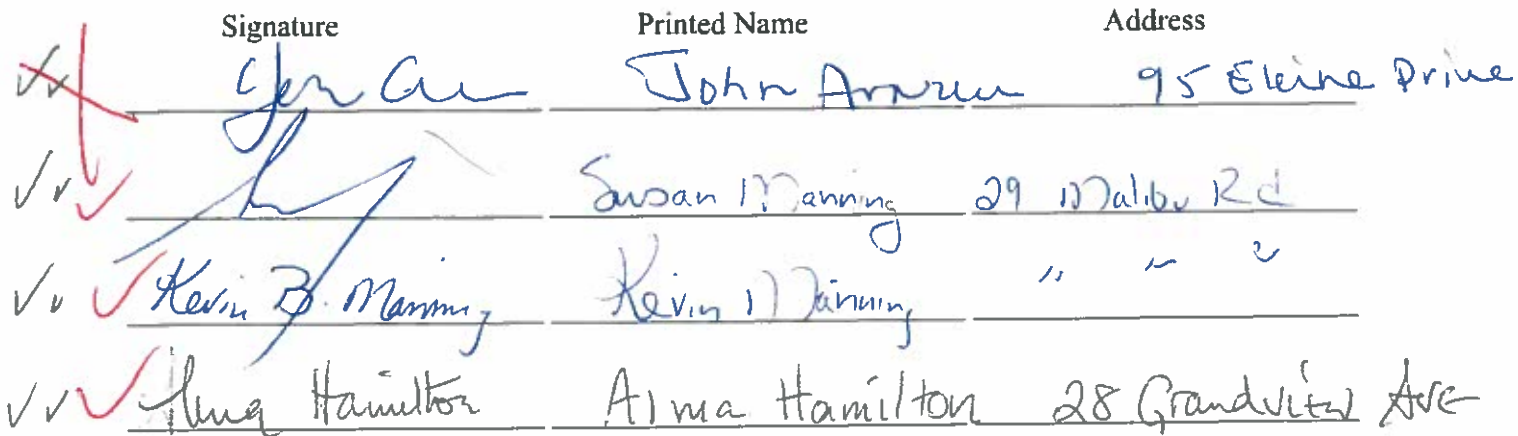 Signature Printed Name Address
John 95 Elaine Drive
Susan Manning 29 Malibu Rd
Kevin B. Manning Kevin Manning " " "
Alma Hamilton Alma Hamilton 28 Grandview Ave